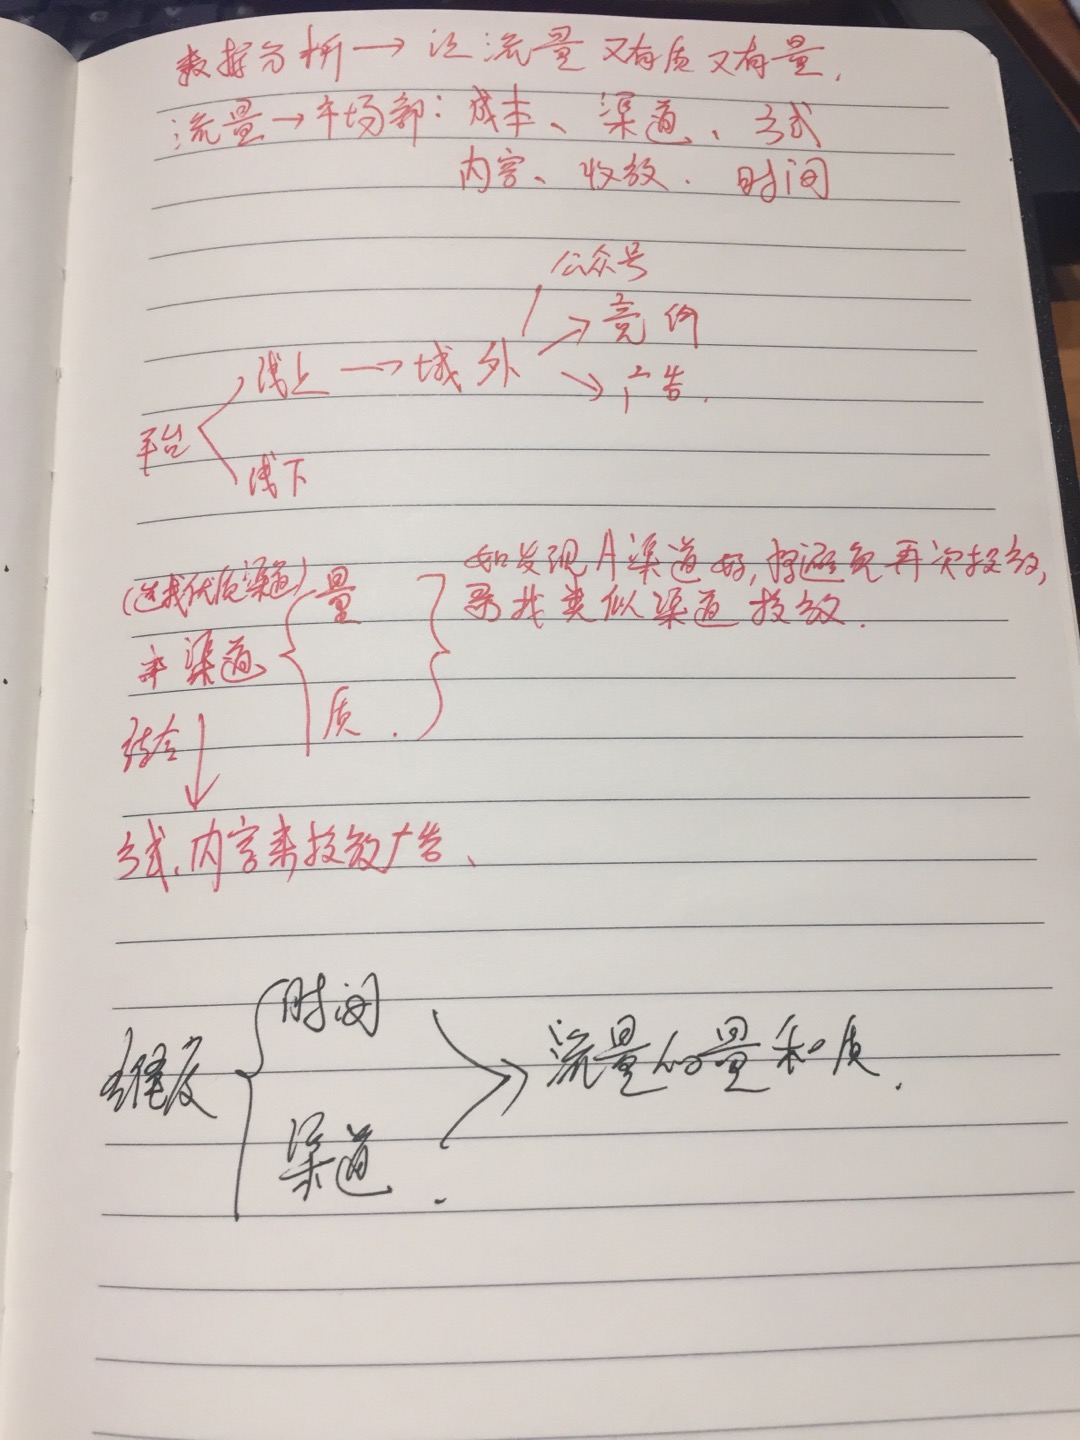 数据分析→让流量又有质又有量.
流量→市场部:成本、渠道、方式
内容、收效.时间
公众号
竞价
线上→域外
广告.
平台
线下
如发现A渠道好,将避免再次投放,
(选择优质渠道)量
寻找类似渠道投放.
渠道
质.
结合
方式、内容来投放广告、
时间
维度
流量的量和质.
渠道.